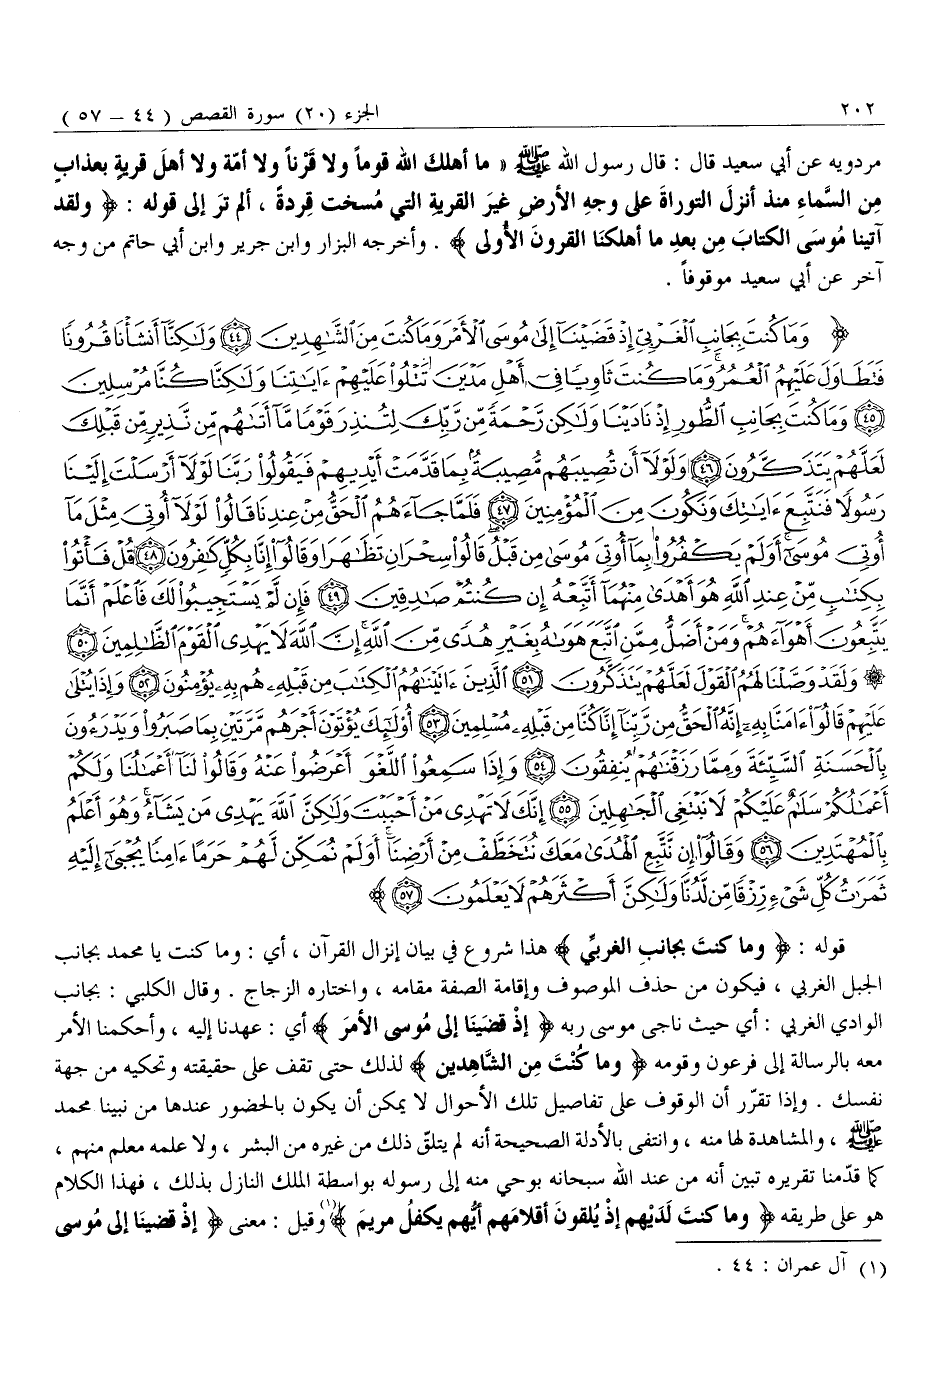 ٢٠٢ الجزء (٢٠) سورة القصص (٤٤ – ٥٧)
مردويه عن أبي سعيد قال : قال رسول الله ﷺ « ما أهلكَ الله قوماً ولا قَرْناً ولا أمّة ولا أهلَ قريةٍ بعذابٍ
مِن السَّماءِ منذ أنزلَ التوراةَ على وجهِ الأرضِ غيرَ القريةِ التي مُسخت قِردةً ، ألم ترَ إلى قوله : ﴿ ولقد
آتينا مُوسَى الكتابَ مِن بعدِ ما أهلكنَا القرونَ الأُولى ﴾ . وأخرجه البزار وابن جرير وابن أبي حاتم من وجه
آخر عن أبي سعيد موقوفاً .
﴿ وَمَا كُنتَ بِجَانِبِ الْغَرْبِيِّ إِذْ قَضَيْنَآ إِلَىٰ مُوسَى الْأَمْرَ وَمَا كُنتَ مِنَ الشَّٰهِدِينَ ﴿٤٤﴾ وَلَٰكِنَّآ أَنشَأْنَا قُرُونًا
فَتَطَاوَلَ عَلَيْهِمُ الْعُمُرُ ۚ وَمَا كُنتَ ثَاوِيًا فِىٓ أَهْلِ مَدْيَنَ تَتْلُوا۟ عَلَيْهِمْ ءَايَٰتِنَا وَلَٰكِنَّا كُنَّا مُرْسِلِينَ
﴿٤٥﴾ وَمَا كُنتَ بِجَانِبِ الطُّورِ إِذْ نَادَيْنَا وَلَٰكِن رَّحْمَةً مِّن رَّبِّكَ لِتُنذِرَ قَوْمًا مَّآ أَتَىٰهُم مِّن نَّذِيرٍ مِّن قَبْلِكَ
لَعَلَّهُمْ يَتَذَكَّرُونَ ﴿٤٦﴾ وَلَوْلَآ أَن تُصِيبَهُم مُّصِيبَةٌۢ بِمَا قَدَّمَتْ أَيْدِيهِمْ فَيَقُولُوا۟ رَبَّنَا لَوْلَآ أَرْسَلْتَ إِلَيْنَا
رَسُولًا فَنَتَّبِعَ ءَايَٰتِكَ وَنَكُونَ مِنَ الْمُؤْمِنِينَ ﴿٤٧﴾ فَلَمَّا جَآءَهُمُ الْحَقُّ مِنْ عِندِنَا قَالُوا۟ لَوْلَآ أُوتِىَ مِثْلَ مَآ
أُوتِىَ مُوسَىٰٓ ۚ أَوَلَمْ يَكْفُرُوا۟ بِمَآ أُوتِىَ مُوسَىٰ مِن قَبْلُ ۖ قَالُوا۟ سِحْرَانِ تَظَٰهَرَا وَقَالُوٓا۟ إِنَّا بِكُلٍّ كَٰفِرُونَ ﴿٤٨﴾ قُلْ فَأْتُوا۟
بِكِتَٰبٍ مِّنْ عِندِ اللَّهِ هُوَ أَهْدَىٰ مِنْهُمَآ أَتَّبِعْهُ إِن كُنتُمْ صَٰدِقِينَ ﴿٤٩﴾ فَإِن لَّمْ يَسْتَجِيبُوا۟ لَكَ فَاعْلَمْ أَنَّمَا
يَتَّبِعُونَ أَهْوَآءَهُمْ ۚ وَمَنْ أَضَلُّ مِمَّنِ اتَّبَعَ هَوَىٰهُ بِغَيْرِ هُدًى مِّنَ اللَّهِ ۚ إِنَّ اللَّهَ لَا يَهْدِى الْقَوْمَ الظَّٰلِمِينَ ﴿٥٠﴾
۞ وَلَقَدْ وَصَّلْنَا لَهُمُ الْقَوْلَ لَعَلَّهُمْ يَتَذَكَّرُونَ ﴿٥١﴾ الَّذِينَ ءَاتَيْنَٰهُمُ الْكِتَٰبَ مِن قَبْلِهِۦ هُم بِهِۦ يُؤْمِنُونَ ﴿٥٢﴾ وَإِذَا يُتْلَىٰ
عَلَيْهِمْ قَالُوٓا۟ ءَامَنَّا بِهِۦٓ إِنَّهُ الْحَقُّ مِن رَّبِّنَآ إِنَّا كُنَّا مِن قَبْلِهِۦ مُسْلِمِينَ ﴿٥٣﴾ أُو۟لَٰٓئِكَ يُؤْتَوْنَ أَجْرَهُم مَّرَّتَيْنِ بِمَا صَبَرُوا۟ وَيَدْرَءُونَ
بِالْحَسَنَةِ السَّيِّئَةَ وَمِمَّا رَزَقْنَٰهُمْ يُنفِقُونَ ﴿٥٤﴾ وَإِذَا سَمِعُوا۟ اللَّغْوَ أَعْرَضُوا۟ عَنْهُ وَقَالُوا۟ لَنَآ أَعْمَٰلُنَا وَلَكُمْ
أَعْمَٰلُكُمْ سَلَٰمٌ عَلَيْكُمْ لَا نَبْتَغِى الْجَٰهِلِينَ ﴿٥٥﴾ إِنَّكَ لَا تَهْدِى مَنْ أَحْبَبْتَ وَلَٰكِنَّ اللَّهَ يَهْدِى مَن يَشَآءُ ۚ وَهُوَ أَعْلَمُ
بِالْمُهْتَدِينَ ﴿٥٦﴾ وَقَالُوٓا۟ إِن نَّتَّبِعِ الْهُدَىٰ مَعَكَ نُتَخَطَّفْ مِنْ أَرْضِنَآ ۚ أَوَلَمْ نُمَكِّن لَّهُمْ حَرَمًا ءَامِنًا يُجْبَىٰٓ إِلَيْهِ
ثَمَرَٰتُ كُلِّ شَىْءٍ رِّزْقًا مِّن لَّدُنَّا وَلَٰكِنَّ أَكْثَرَهُمْ لَا يَعْلَمُونَ ﴿٥٧﴾ ﴾
قوله : ﴿ وما كنتَ بجانبِ الغربيِّ ﴾ هذا شروع في بيان إنزال القرآن ، أي : وما كنت يا محمد بجانب
الجبل الغربي ، فيكون من حذف الموصوف وإقامة الصفة مقامه ، واختاره الزجاج . وقال الكلبي : بجانب
الوادي الغربي : أي حيث ناجى موسى ربه ﴿ إذْ قضَينَا إلى مُوسى الأمرَ ﴾ أي : عهدنا إليه ، وأحكمنا الأمر
معه بالرسالة إلى فرعون وقومه ﴿ وما كُنْتَ مِن الشَّاهِدين ﴾ لذلك حتى تقف على حقيقته وتحكيه من جهة
نفسك . وإذا تقرّر أن الوقوف على تفاصيل تلك الأحوال لا يمكن أن يكون بالحضور عندها من نبينا محمد
ﷺ ، والمشاهدة لها منه ، وانتفى بالأدلة الصحيحة أنه لم يتلقّ ذلك من غيره من البشر ، ولا علمه معلم منهم ،
كما قدّمنا تقريره تبين أنه من عند الله سبحانه بوحي منه إلى رسوله بواسطة الملك النازل بذلك ، فهذا الكلام
هو على طريقه ﴿ وما كنتَ لَدَيْهم إذ يُلقونَ أقلامَهم أيُّهم يكفلُ مريمَ ﴾(١) وقيل : معنى ﴿ إذْ قضينا إلى مُوسى
(١) آل عمران : ٤٤ .